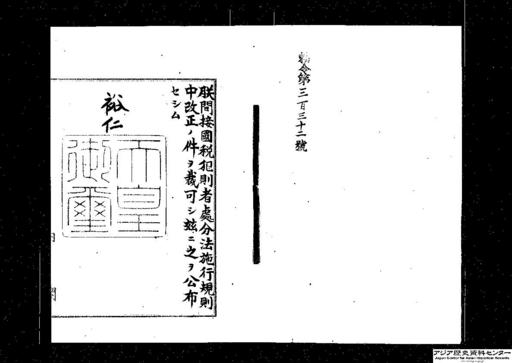 勅令第三百三十二號
朕間接國税犯則者處分法施行規則
中改正ノ件ヲ裁可シ玆ニ之ヲ公布
セシム
裕仁
天皇
御璽
アジア歴史資料センター
Japan Center for Asian Historical Records